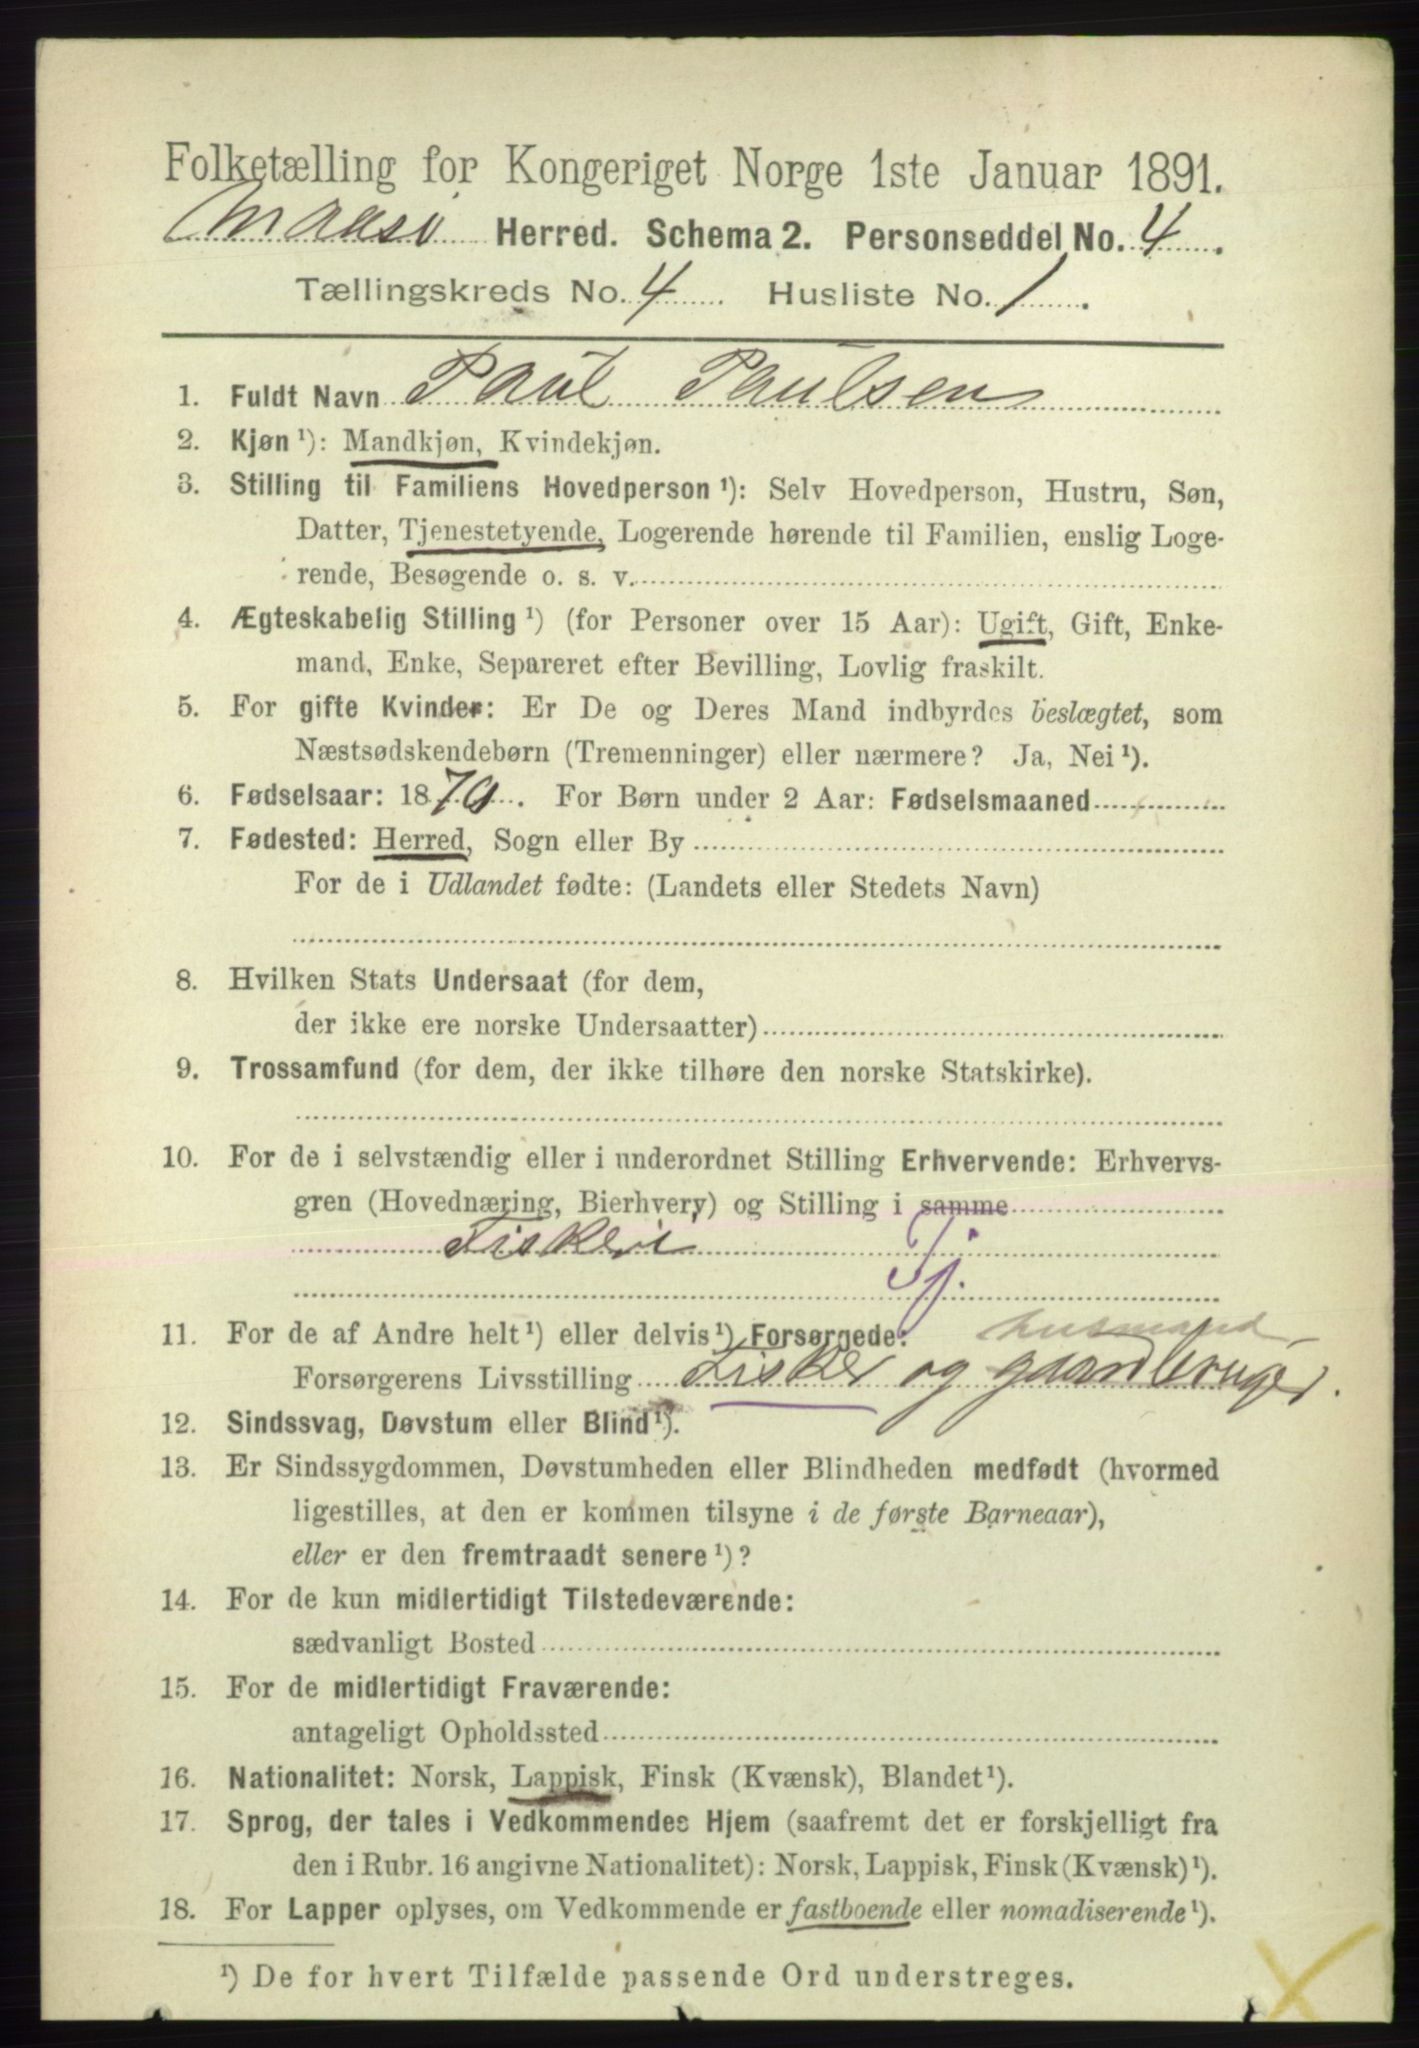 Folketælling for Kongeriget Norge 1ste Januar 1891.
Maasø Herred. Schema 2. Personseddel No. 4.
Tællingskreds No. 4 Husliste No. 1.
1. Fuldt Navn Paul Paulsen
2. Kjøn ¹): Mandkjøn, Kvindekjøn.
3. Stilling til Familiens Hovedperson ¹): Selv Hovedperson, Hustru, Søn,
Datter, Tjenestetyende, Logerende hørende til Familien, enslig Loge-
rende, Besøgende o. s. v.
4. Ægteskabelig Stilling ¹) (for Personer over 15 Aar): Ugift, Gift, Enke-
mand, Enke, Separeret efter Bevilling, Lovlig fraskilt.
5. For gifte Kvinder: Er De og Deres Mand indbyrdes beslægtet, som
Næstsødskendebørn (Tremenninger) eller nærmere? Ja, Nei ¹).
6. Fødselsaar: 1870. For Børn under 2 Aar: Fødselsmaaned
7. Fødested: Herred, Sogn eller By
For de i Udlandet fødte: (Landets eller Stedets Navn)
8. Hvilken Stats Undersaat (for dem,
der ikke ere norske Undersaatter)
9. Trossamfund (for dem, der ikke tilhøre den norske Statskirke).
10. For de i selvstændig eller i underordnet Stilling Erhvervende: Erhvervs-
gren (Hovednæring, Bierhverv) og Stilling i samme
Fiskeri Tj.
11. For de af Andre helt ¹) eller delvis ¹) Forsørgede: husmand
Forsørgerens Livsstilling Fisker og gaardbruger.
12. Sindssvag, Døvstum eller Blind ¹).
13. Er Sindssygdommen, Døvstumheden eller Blindheden medfødt (hvormed
ligestilles, at den er kommen tilsyne i de første Barneaar),
eller er den fremtraadt senere ¹)?
14. For de kun midlertidigt Tilstedeværende:
sædvanligt Bosted
15. For de midlertidigt Fraværende:
antageligt Opholdssted
16. Nationalitet: Norsk, Lappisk, Finsk (Kvænsk), Blandet ¹).
17. Sprog, der tales i Vedkommendes Hjem (saafremt det er forskjelligt fra
den i Rubr. 16 angivne Nationalitet): Norsk, Lappisk, Finsk (Kvænsk) ¹).
18. For Lapper oplyses, om Vedkommende er fastboende eller nomadiserende ¹).
¹) De for hvert Tilfælde passende Ord understreges.